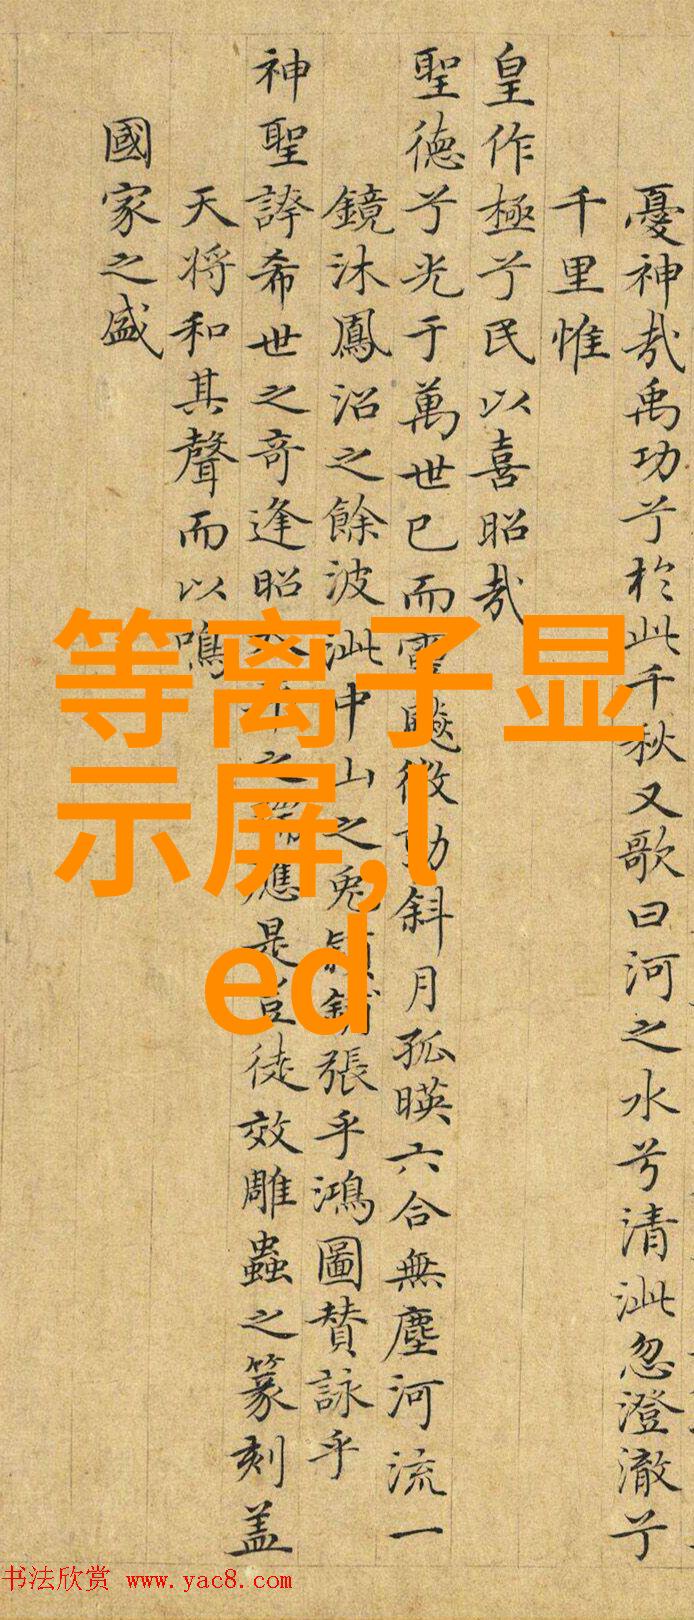 憂神哉禹功兮於此千秋又歌曰河之水兮清泚忽澄澈兮
千里惟
皇作極兮民以喜昭哉
聖德兮光于萬世已而雷飈微動斜月孤暎六合無塵河流一
鏡沐鳳沼之餘波泚中山之兔穎鋪張乎鴻圖賛詠乎
神聖誇希世之奇逢昭 之 應是豈徒效雕蟲之篆刻盖
天将和其聲而以鳴
國家之盛
等离子显
示屏,l
ed
书法欣赏 www.yac8.com